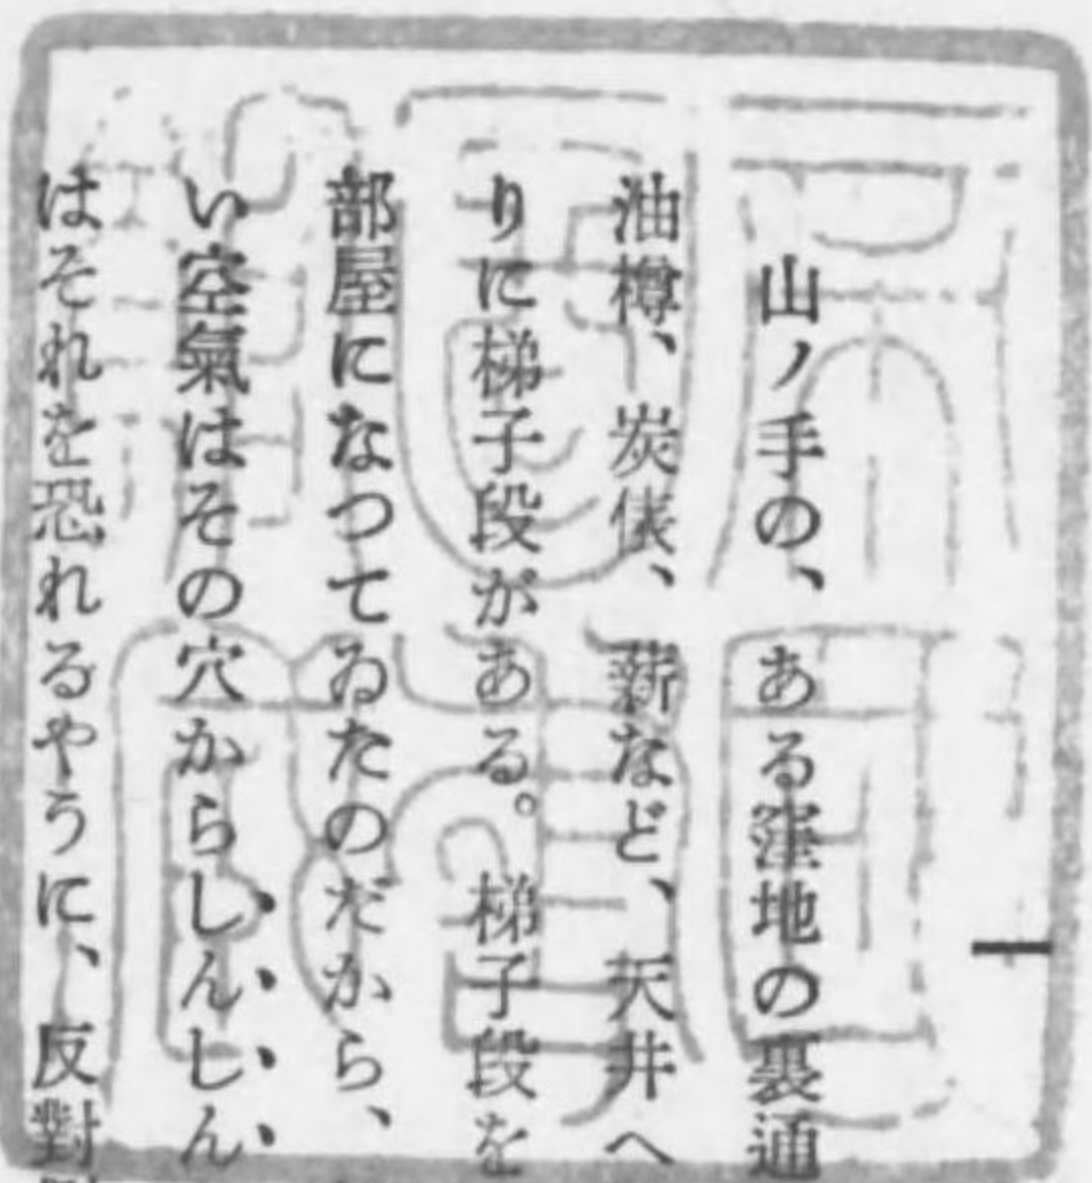 一
山ノ手の、ある窪地の裏通
油樽、炭俵、薪など、天井へ
りに梯子段がある。梯子段を
部屋になつてゐたのだから、
い空氣はその穴からしんしん
はそれを恐れるやうに、反對